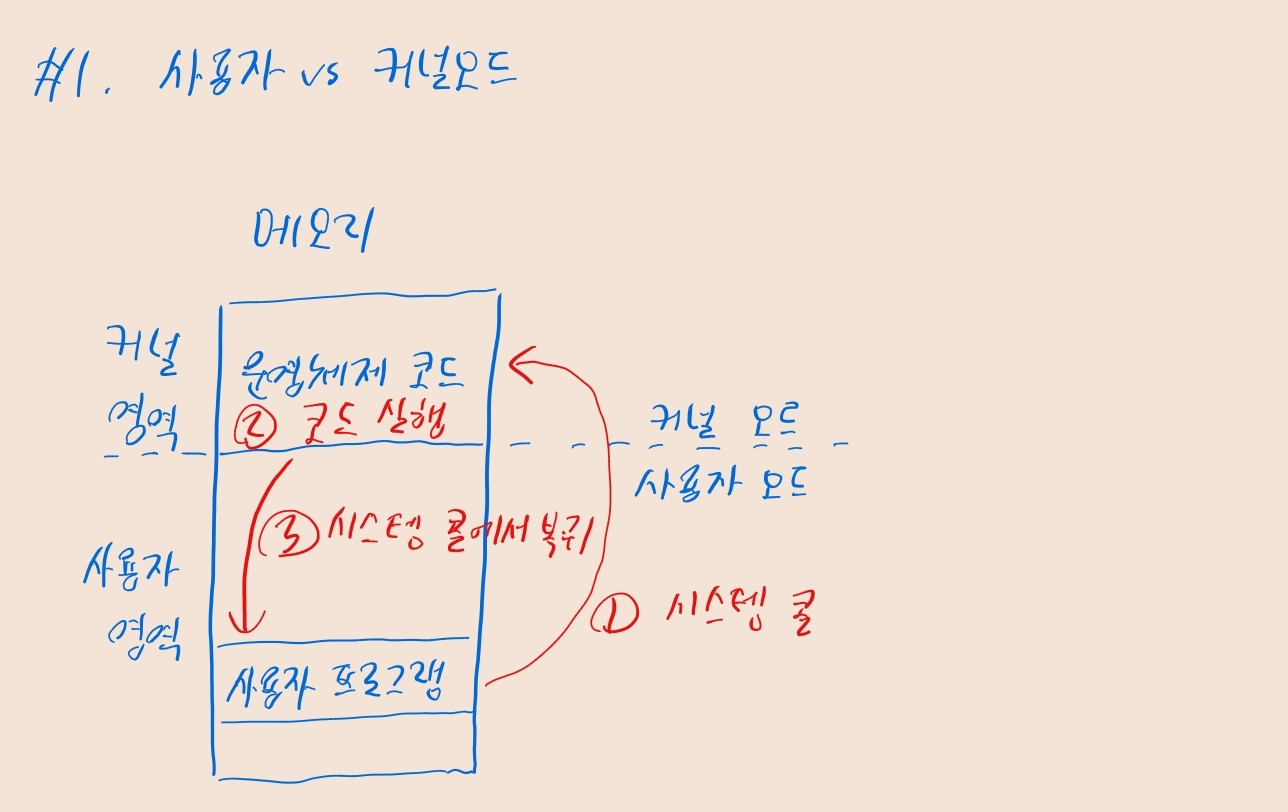 #1. 사용자 vs 커널모드
메모리
커널
영역
운영체제 코드
② 코드 실행
커널 모드
사용자 모드
③ 시스템 콜에서 복귀
사용자
영역
① 시스템 콜
사용자 프로그램